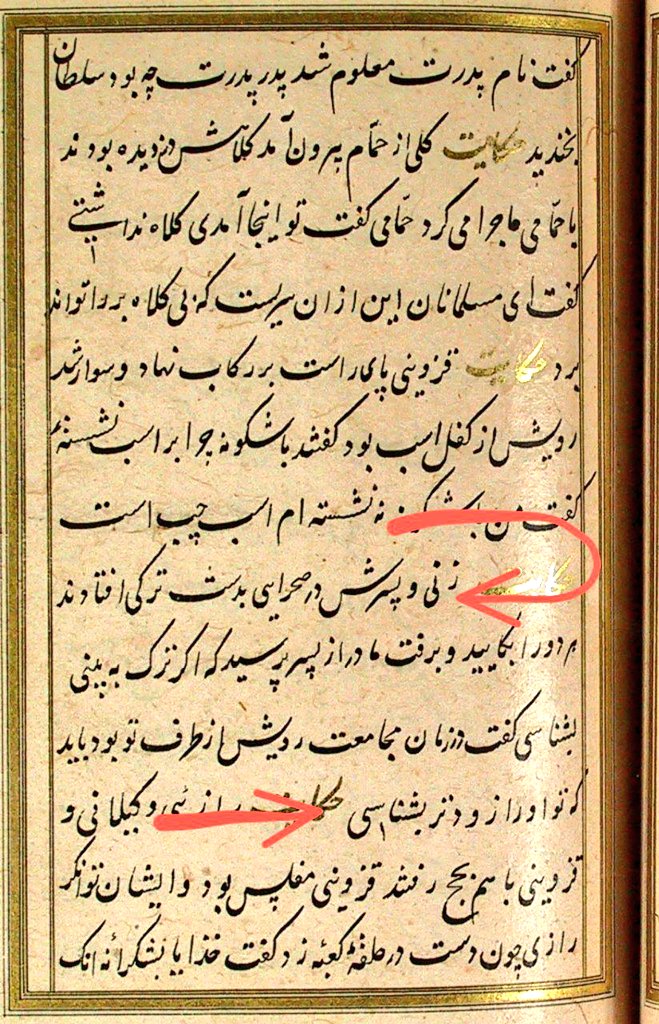 گفت نام پدرت معلوم شد پدر پدرت چه بود سلطان
بخندید حکایت کلی از حمّام بیرون آمد کلاهش دزدیده بودند
با حمّامی ماجرا می کرد حمّامی گفت تو اینجا آمدی کلاه نداشتی
گفت ای مسلمانان این از ان سریست که بی کلاه بر راه تواند
برد حکایت قزوینی پای راست بر رکاب نهاد و سوار شد
رویش از کفل اسب بود گفتند باشکونه چرا بر اسب نشستهٔ
گفت من باشکونه نه نشسته ام اسب چپ است
حکایت زنی و پسرش در صحرایی بدست ترکی افتادند
هر دو را بکایید و برفت مادر از پسر پرسید که اکر ترک به بینی
بشناسی گفت در زمان مجامعت رویش از طرف تو بود باید
که تو او را زودتر بشناسی حکایت رازئی و کیلانی و
قزوینی با هم بحج رفتند قزوینی مفلس بود و ایشان توانکر
رازی چون دست در حلقهٔ کعبه زد گفت خدایا بشکرانه انک